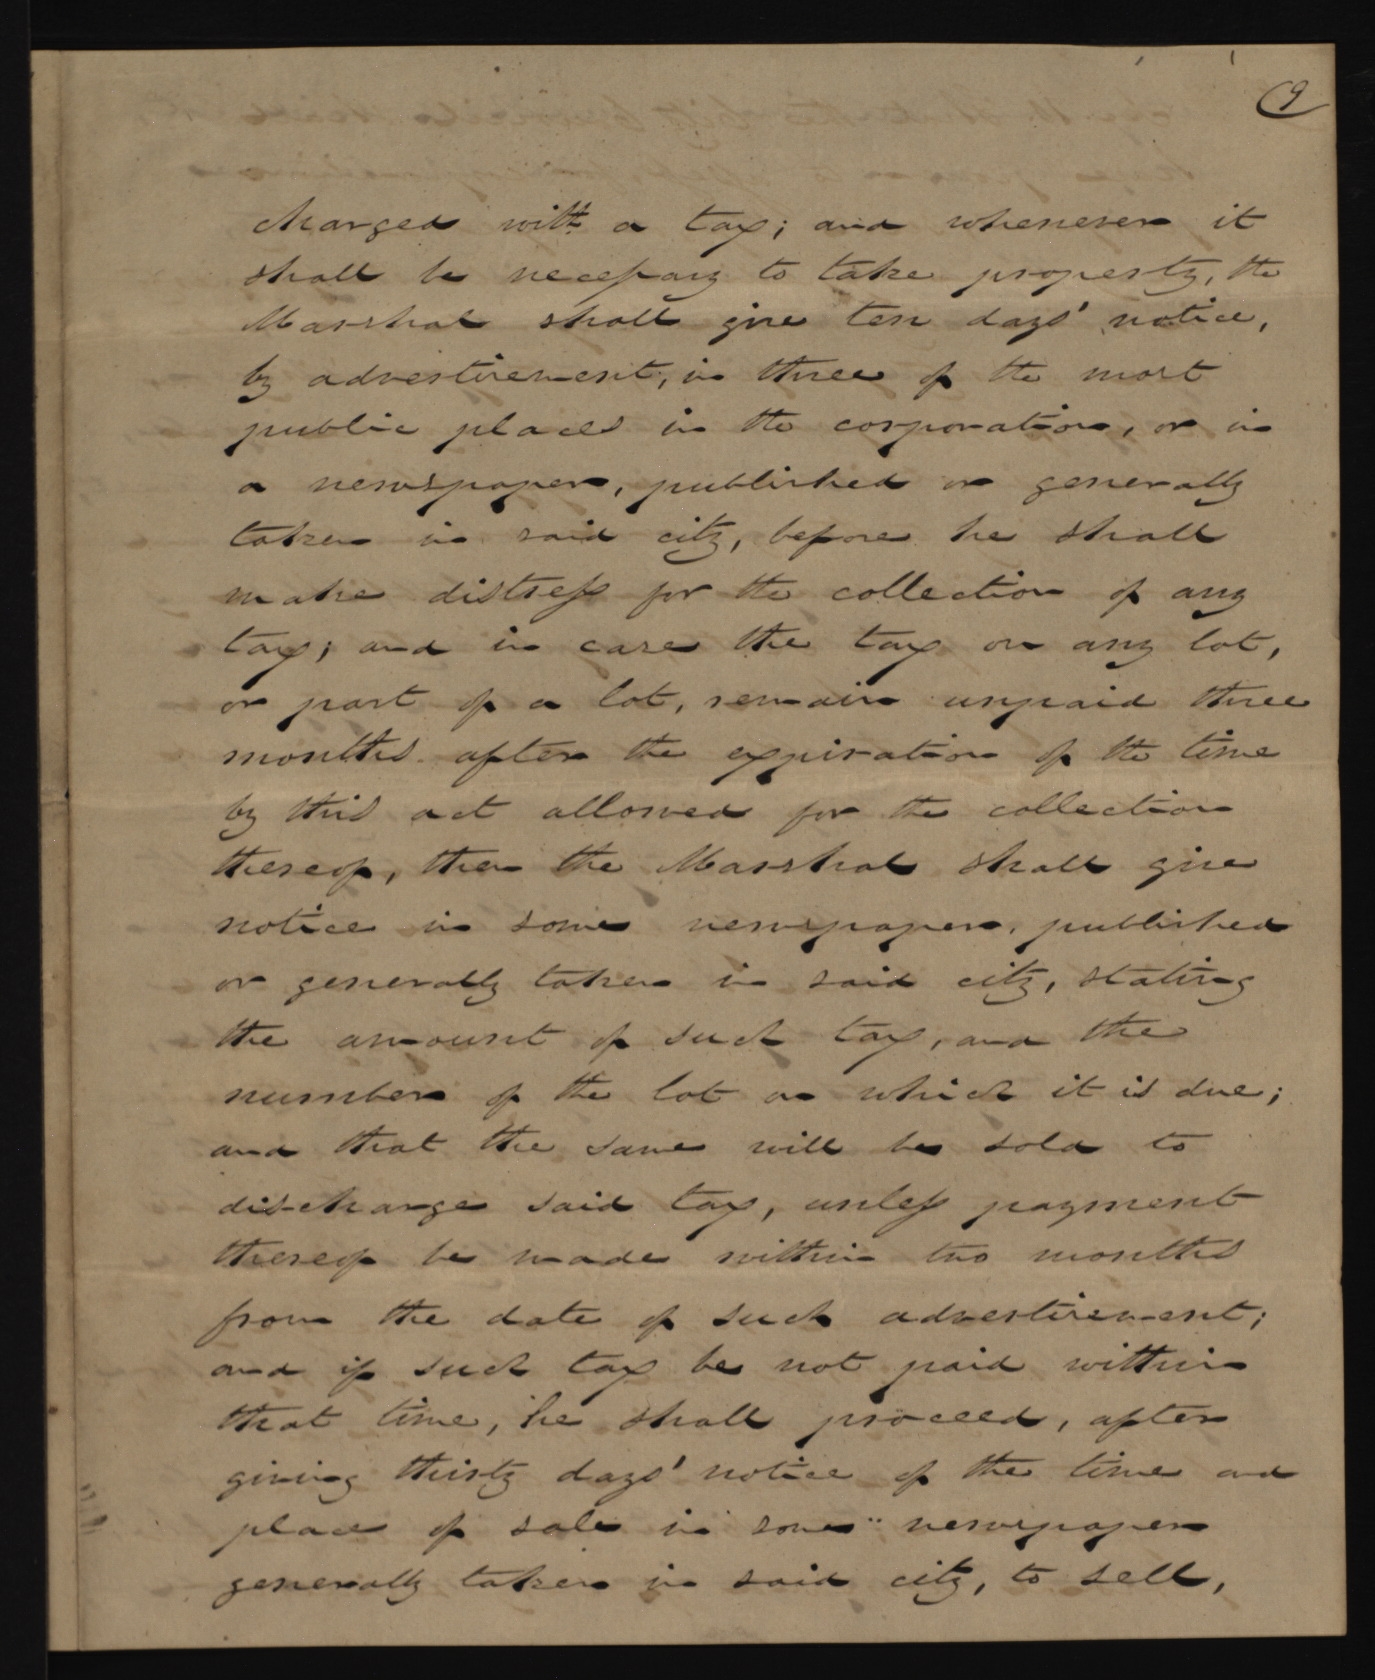 9
charged with a tax; and whenever it
shall be necessary to take property, the
Marshal shall give ten days' notice,
by advertisement, in three of the most
public places in the corporation, or in
a newspaper, published or generally
taken in said city, before he shall
make distress for the collection of any
tax; and in case the tax on any lot,
or part of a lot, remain unpaid three
months after the expiration of the time
by this act allowed for the collection
thereof, then the Marshal shall give
notice in some newspaper, published
or generally taken in said city, stating
the amount of such tax, and the
number of the lot on which it is due;
and that the same will be sold to
discharge said tax, unless payment
thereof be made within two months
from the date of such advertisement;
and if such tax be not paid within
that time, he shall proceed, after
giving thirty days' notice of the time and
place of sale in some newspaper
generally taken in said city, to sell,